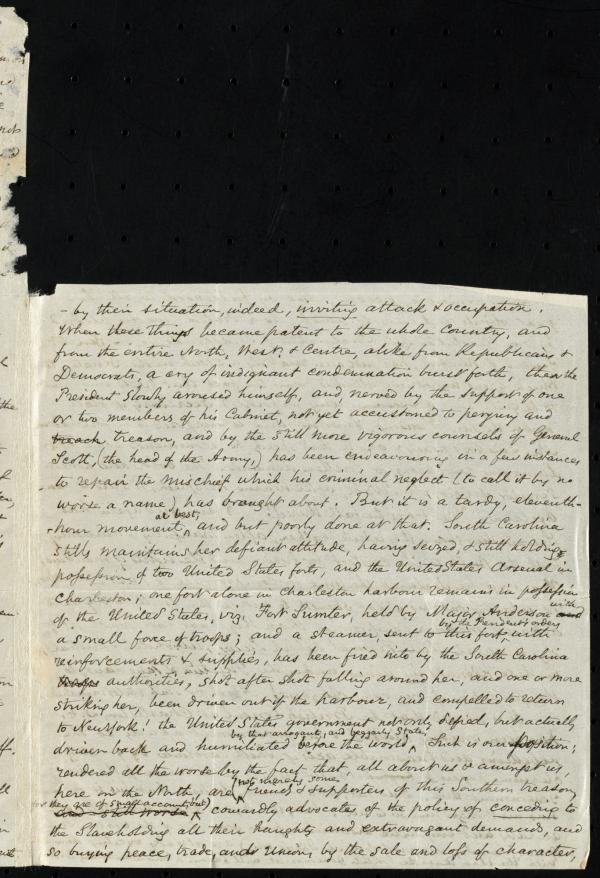 - by their situation, indeed, inviting attack & occupation.
When these things became patent to the whole Country, and
from the entire North, West, & Centre, alike from Republicans &
Democrats, a cry of indignant condemnation burst forth, then the
President slowly aroused himself, and, nerved by the support of one
or two members of his Cabinet, not yet accustomed to perjury and
treason, and by the still more vigorous counsels of General
Scott, (the head of the Army,) has been endeavouring in a few instances
to repair the mischief which his criminal neglect (to call it by no
worse a name) has brought about. But it is a tardy, eleventh-
at best,
-hour movement, and but poorly done at that. South Carolina
still maintains her defiant attitude, having seized, & still holding
possession of two United States forts, and the United States Arsenal in
Charleston; one fort alone in Charleston harbour remains in possession
of the United States, viz. Fort Sumter, held by Major Anderson with
by the President's orders
a small force of troops; and a steamer, sent to this fort with
reinforcements & supplies, has been fired into by the South Carolina
troops authorities, shot after shot falling around her, and one or more
striking her, been driven out of the harbour, and compelled to return
to New York! the United States government not only defied, but actually
by that arrogant, and beggarly State!
driven back and humiliated before the world. Such is our position;
rendered all the worse by the fact that, all about us & amongst us,
not merely some
here in the North, are friends & supporters of this Southern treason,
(for they are of small account, but)
and still worse cowardly advocates of the policy of conceding to
the Slaveholding all their haughty and extravagant demands, and
so buying peace, trade, and Union, by the sale and loss of character,